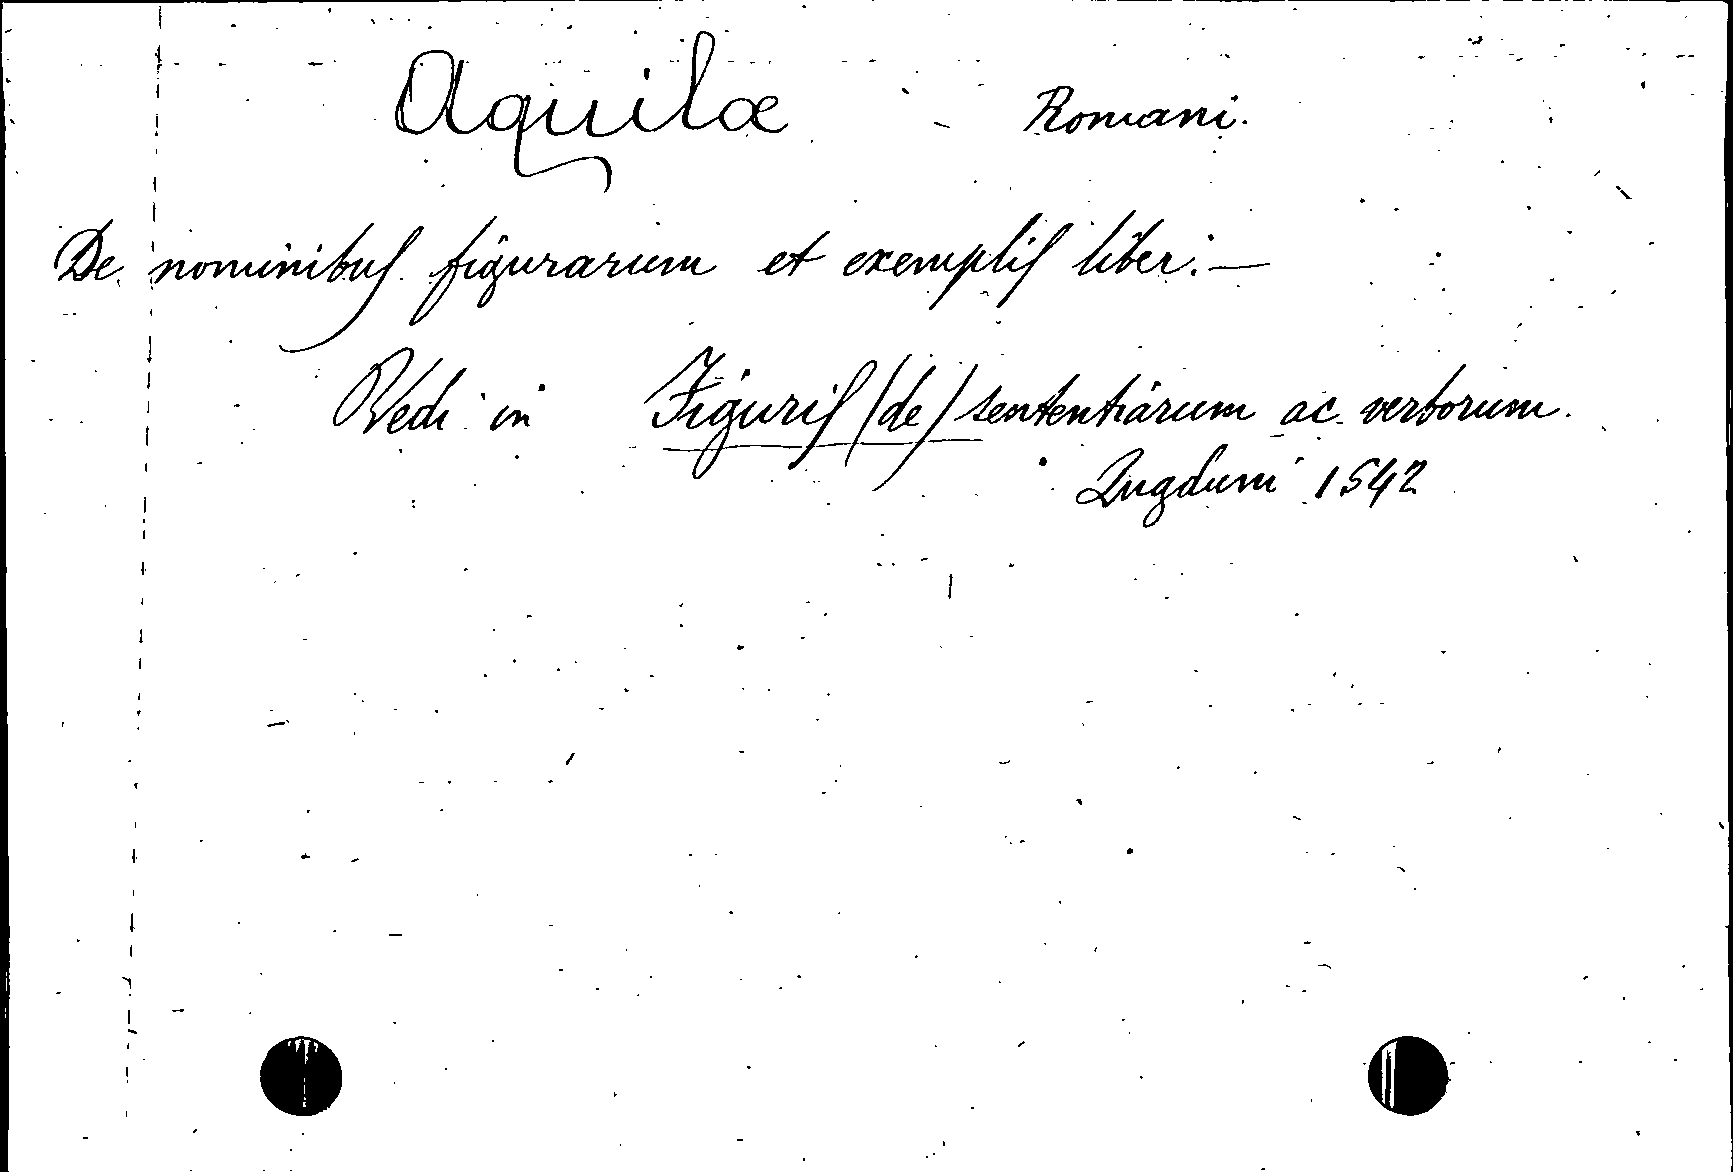 Aquilæ - Romani.
De nominibus figurarum et exemplis liber. —
Vedi in Figuris (de) sententiarum ac verborum.
Lugduni 1542